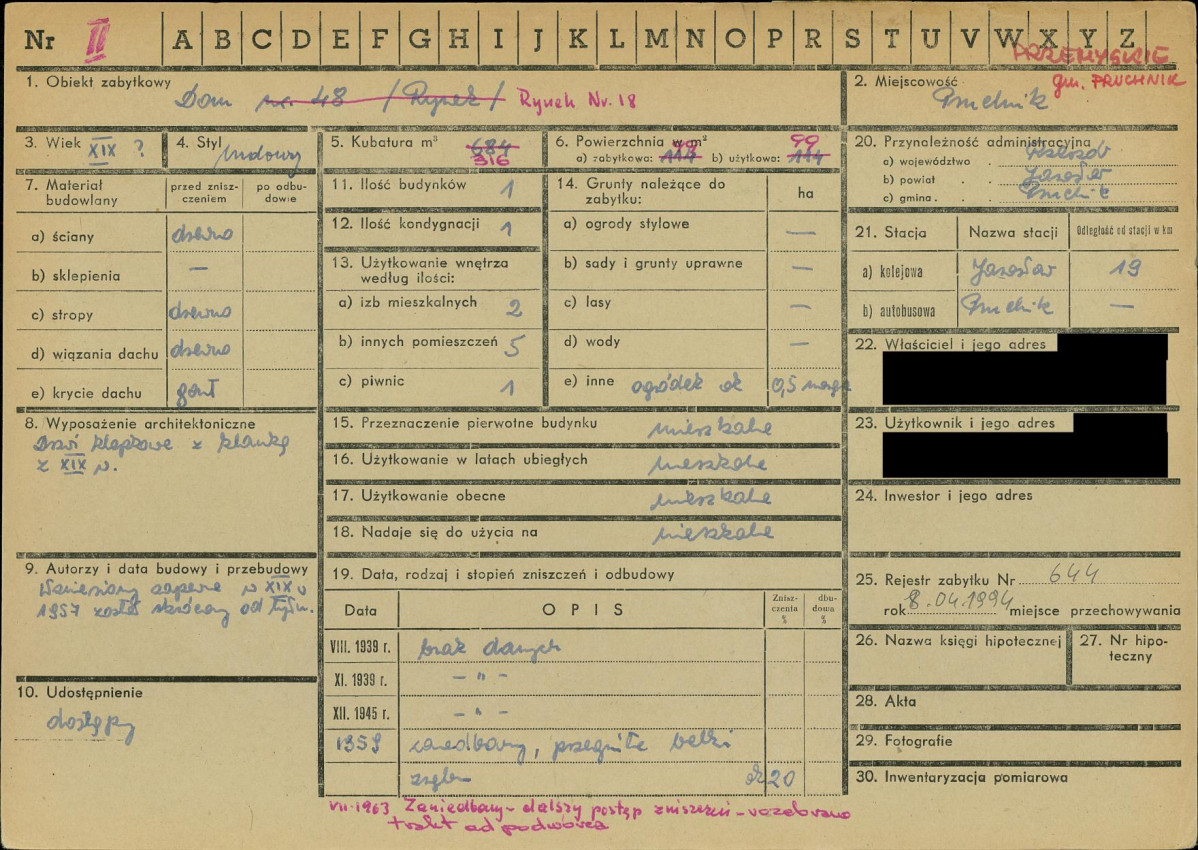 Nr II A B C D E F G H I J K L M N O P R S T U V W X Y Z
PRZEMYSKIE
gm. PRUCHNIK
1. Obiekt zabytkowy
Dom nr. 48 /Rynek/ Rynek Nr. 18
2. Miejscowość
Pruchnik
3. Wiek XIX ?
4. Styl ludowy
5. Kubatura m³ 684
316
6. Powierzchnia w m²
a) zabytkowa: 114 b) użytkowa: 114
99
7. Materiał budowlany
przed zniszczeniem
po odbudowie
a) ściany drewno
b) sklepienia —
c) stropy drewno
d) wiązania dachu drewno
e) krycie dachu gont
8. Wyposażenie architektoniczne
Drzwi klepkowe z klamką
z XIX w.
9. Autorzy i data budowy i przebudowy
Wzniesiony zapewne w XIX w
1957 został skrócony od tyłu.
10. Udostępnienie
dostępny
11. Ilość budynków 1
12. Ilość kondygnacji 1
13. Użytkowanie wnętrza
według ilości:
a) izb mieszkalnych 2
b) innych pomieszczeń 5
c) piwnic 1
14. Grunty należące do
zabytku:
ha
a) ogrody stylowe —
b) sady i grunty uprawne —
c) lasy —
d) wody —
e) inne ogródek ok 0,5 morga
15. Przeznaczenie pierwotne budynku mieszkalne
16. Użytkowanie w latach ubiegłych mieszkalne
17. Użytkowanie obecne mieszkalne
18. Nadaje się do użycia na mieszkalne
19. Data, rodzaj i stopień zniszczeń i odbudowy
Data OPIS Zniszczenia % dbudowa %
VIII. 1939 r. brak danych
XI. 1939 r. - " -
XII. 1945 r. - " -
1959 zaniedbany, przegniłe belki
zrębu ok 20
VII.1963 Zaniedbany - dalszy postęp zniszczeń - rozebrano
trakt od podwórza
20. Przynależność administracyjna
a) województwo Rzeszów
b) powiat Jarosław
c) gmina Pruchnik
21. Stacja
Nazwa stacji
Odległość od stacji w km
a) kolejowa Jarosław 19
b) autobusowa Pruchnik —
22. Właściciel i jego adres
23. Użytkownik i jego adres
24. Inwestor i jego adres
25. Rejestr zabytku Nr 644
rok 8.04.1994 miejsce przechowywania
26. Nazwa księgi hipotecznej
27. Nr hipoteczny
28. Akta
29. Fotografie
30. Inwentaryzacja pomiarowa